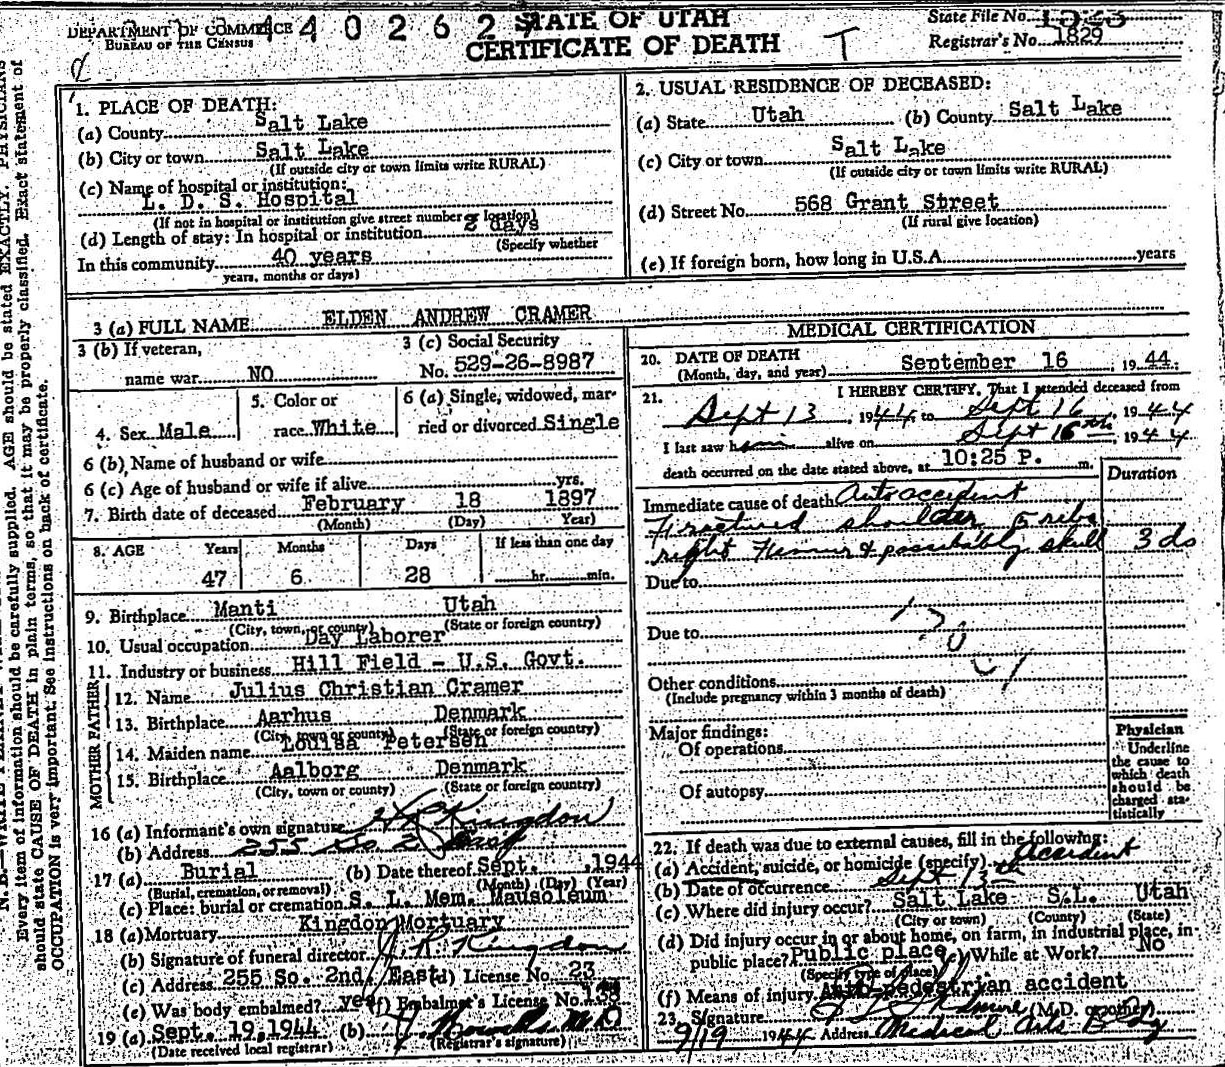 DEPARTMENT OF COMMERCE
BUREAU OF THE CENSUS
440262
STATE OF UTAH
CERTIFICATE OF DEATH
T
State File No.
Registrar's No. 1829
1. PLACE OF DEATH:
(a) County Salt Lake
(b) City or town Salt Lake
(If outside city or town limits write RURAL)
(c) Name of hospital or institution:
L. D. S. Hospital
(If not in hospital or institution give street number & location)
(d) Length of stay: In hospital or institution 2 days
(Specify whether
In this community 40 years
years, months or days)
2. USUAL RESIDENCE OF DECEASED:
(a) State Utah (b) County Salt Lake
(c) City or town Salt Lake
(If outside city or town limits write RURAL)
(d) Street No. 568 Grant Street
(If rural give location)
(e) If foreign born, how long in U.S.A. years
3 (a) FULL NAME ELDEN ANDREW CRAMER
3 (b) If veteran,
name war NO
3 (c) Social Security
No. 529-26-8987
4. Sex Male
5. Color or
race White
6 (a) Single, widowed, mar-
ried or divorced Single
6 (b) Name of husband or wife
6 (c) Age of husband or wife if alive yrs.
7. Birth date of deceased February 18 1897
(Month) (Day) Year)
8. AGE Years Months Days If less than one day
47 6 28 hr. min.
9. Birthplace Manti Utah
(City, town, or county) (State or foreign country)
10. Usual occupation Day Laborer
11. Industry or business Hill Field - U.S. Govt.
FATHER
12. Name Julius Christian Cramer
13. Birthplace Aarhus Denmark
(City, town or county) (State or foreign country)
MOTHER
14. Maiden name Louisa Petersen
15. Birthplace Aalborg Denmark
(City, town or county) (State or foreign country)
16 (a) Informant's own signature Kingdon
(b) Address 255 So 2 East
17 (a) Burial (b) Date thereof Sept. ,1944
(Burial, cremation, or removal) (Month) (Day) (Year)
(c) Place: burial or cremation S. L. Mem. Mausoleum
18 (a) Mortuary Kingdon Mortuary
(b) Signature of funeral director J. R. Kingdon
(c) Address 255 So. 2nd East (d) License No. 23
(e) Was body embalmed? yes (f) Embalmer's License No.
19 (a) Sept. 19,1944 (b) M D
(Date received local registrar) (Registrar's signature)
MEDICAL CERTIFICATION
20. DATE OF DEATH
(Month, day, and year) September 16 , 1944.
21. I HEREBY CERTIFY, That I attended deceased from
Sept 13 , 1944 to Sept 16 , 1944
I last saw him alive on Sept 16th , 1944
death occurred on the date stated above, at 10:25 P. m.
Duration
Immediate cause of death Auto accident
Fractured shoulder, 5 ribs
right Femur & possibably skull 3 ds
Due to
Due to
Other conditions
(Include pregnancy within 3 months of death)
Major findings:
Of operations
Of autopsy
Physician
Underline
the cause to
which death
should be
charged sta-
tistically
22. If death was due to external causes, fill in the following:
(a) Accident, suicide, or homicide (specify) Accident
(b) Date of occurrence Sept 13th
(c) Where did injury occur? Salt Lake S.L. Utah
(City or town) (County) (State)
(d) Did injury occur in or about home, on farm, in industrial place, in-
public place? Public place (e) While at Work? No
(Specify type of place)
(f) Means of injury Auto-pedestrian accident
23. Signature (M.D. or other)
9/19 1944 Address Medical Arts Bldg
Every item of information should be carefully supplied. AGE should be stated EXACTLY. PHYSICIANS
should state CAUSE OF DEATH in plain terms, so that it may be properly classified. Exact statement of
OCCUPATION is very important. See instructions on back of certificate.